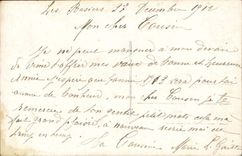 Les Rosiers 27 Décembre 1912
Mon cher Cousin
Je ne peut manquer a mon devoir
de t'offrir mes vœux de bonne et heureuse
année j'espère que l'année 1913 sera pour toi
année de bonheur, mon cher Cousin je te
remercie de ton gentil petit mot cela m'a
fait grand plaisir, a nouveau
Ta Cousine Marie L.